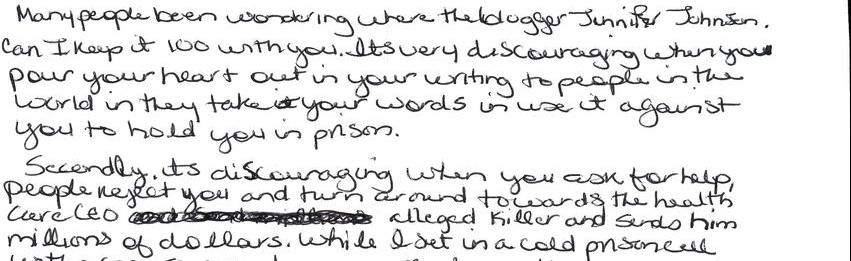 Many people been wondering where the blogger Jennifer Johnson.
Can I keep it 100 with you. Its very discouraging when you
pour your heart out in your writing to people in the
world in they take your words in use it against
you to hold you in prison.
Secondly, its discouraging when you ask for help,
people reject you and turn around towards the health
Care CEO alleged killer and sends him
millions of dollars. While I set in a cold prison cell